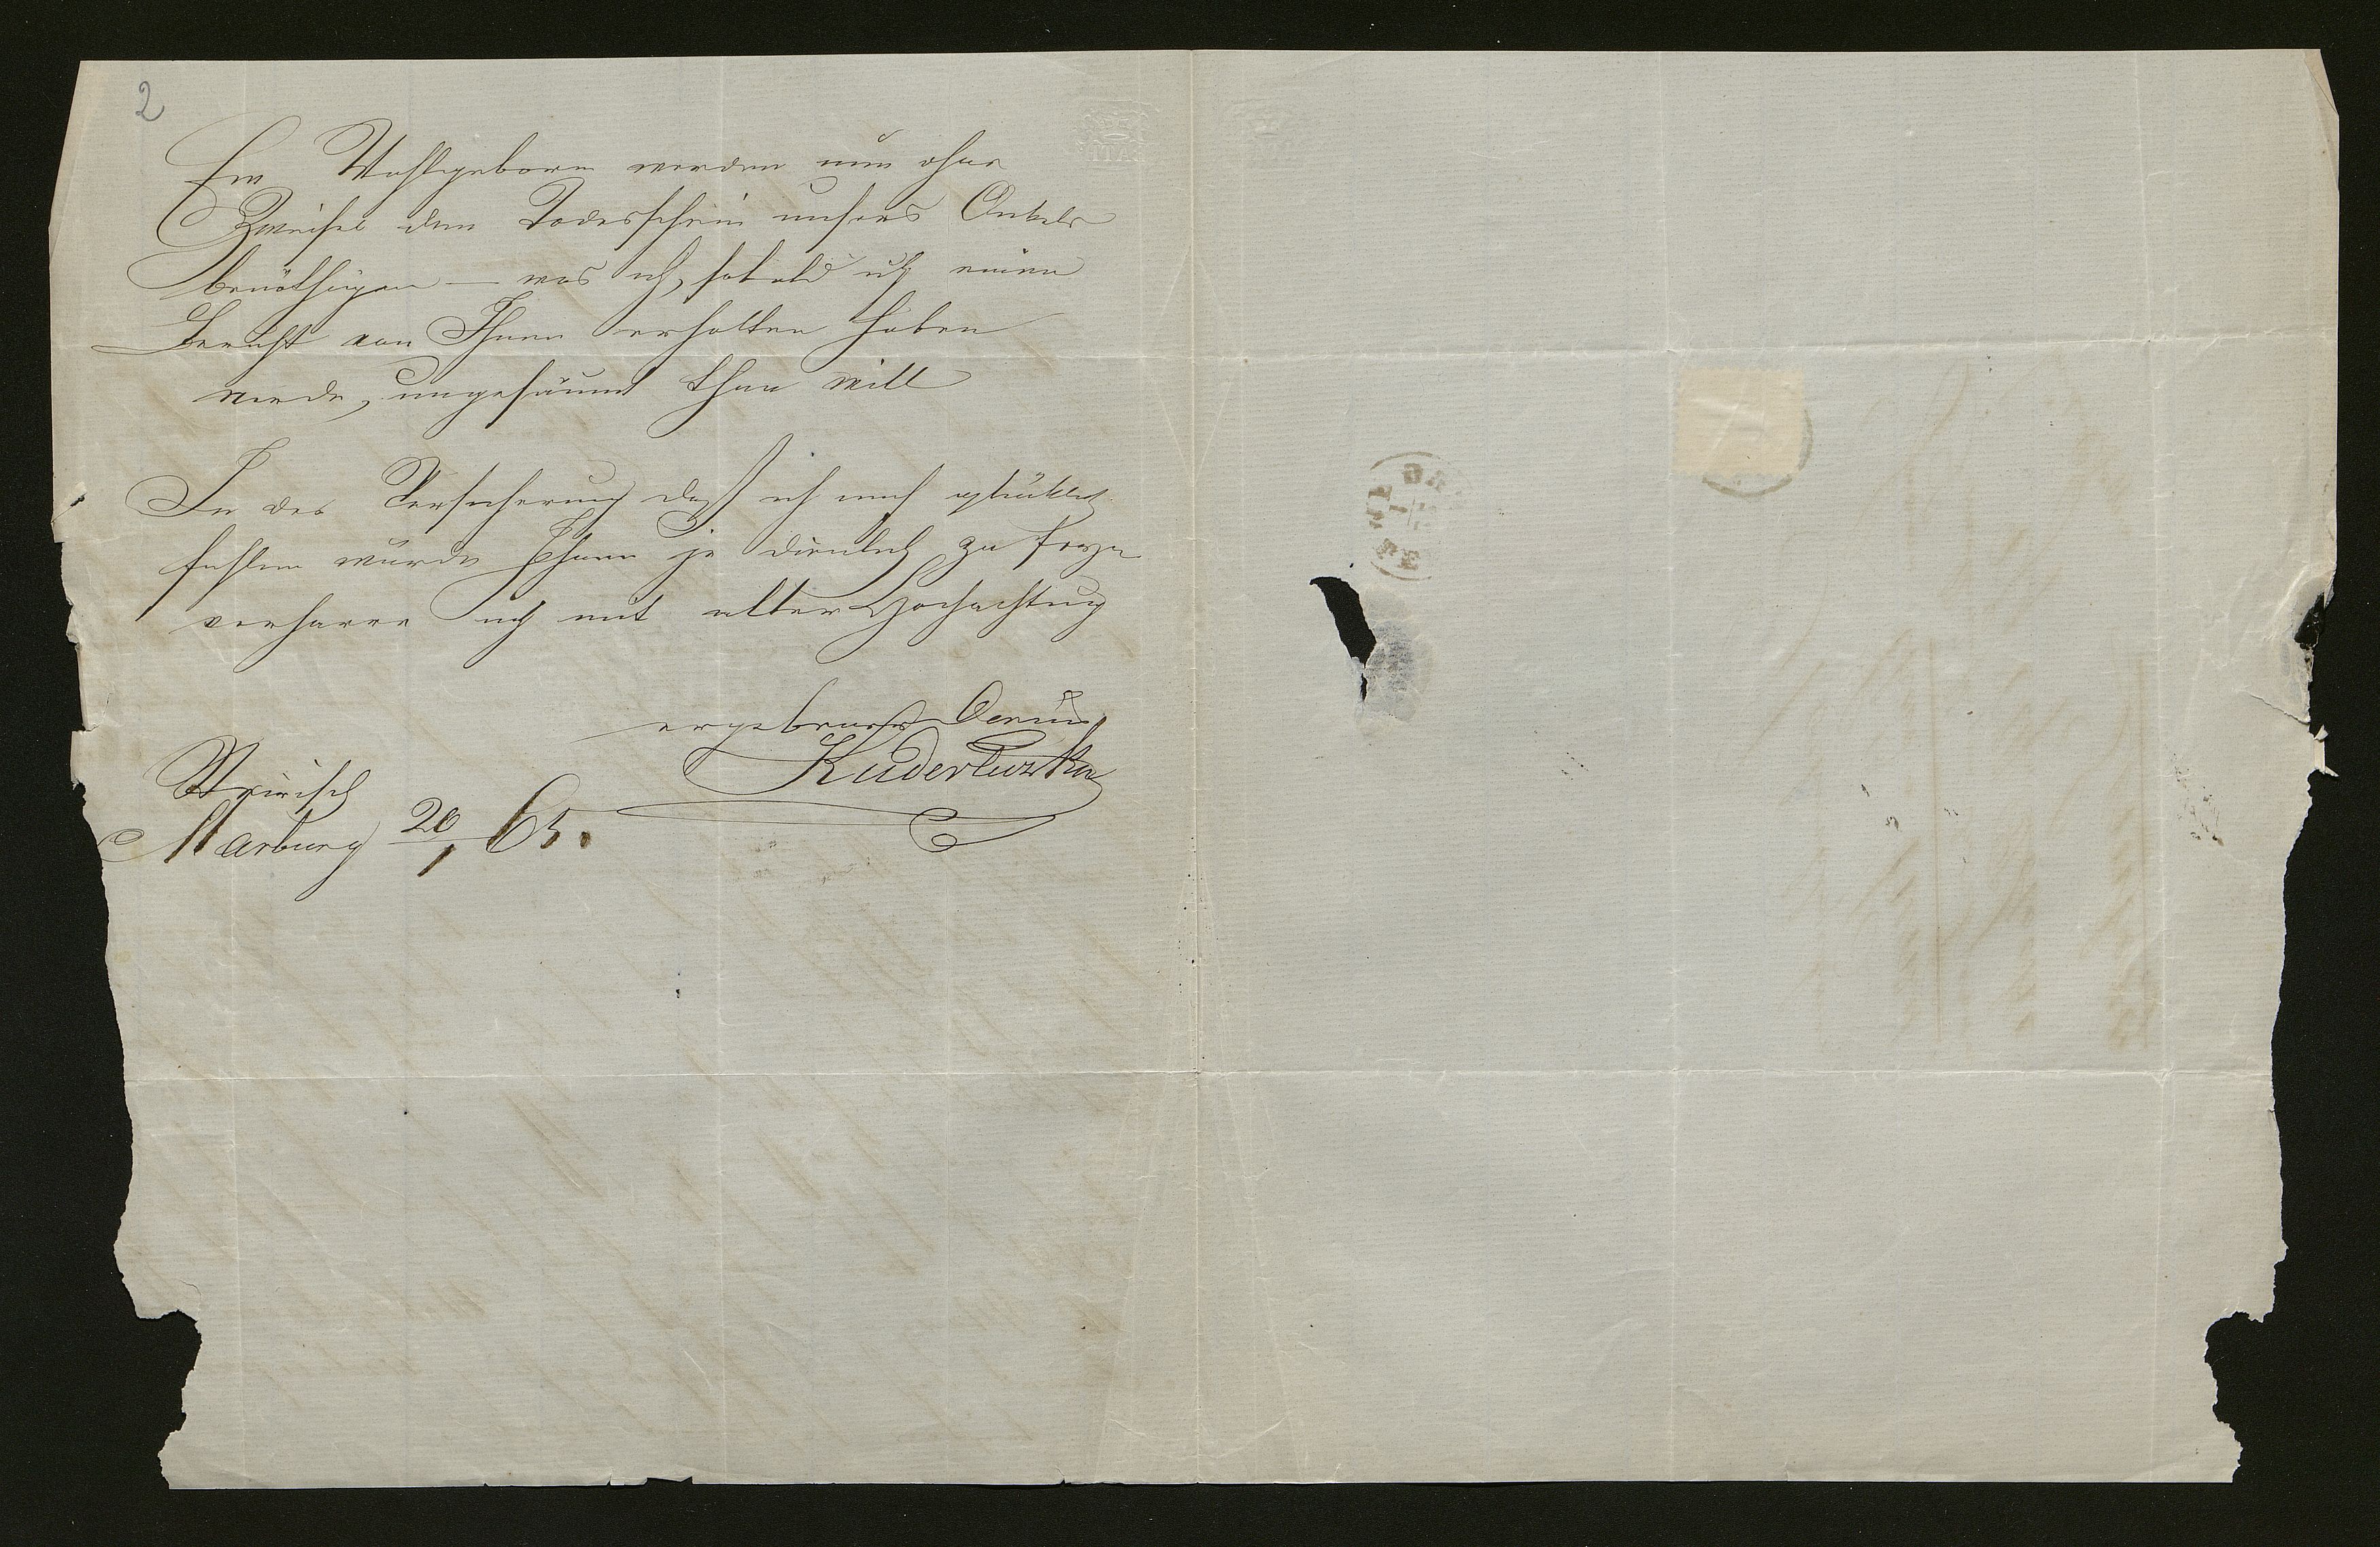 2
Ew Wohlgeborn werden nun ohne
Zweifel den Todesschein unsers Onkels
benöthigen — was ich, sobald ich einen
Bericht von Ihnen erhalten haben
werde, ungesäumt thun will
In der Versicherung daß ich mich glücklich
fühlen würde Ihnen je dienlich zu seyn
verharre ich mit aller Hochachtung
ergebenster
Marburg 20/1 65.